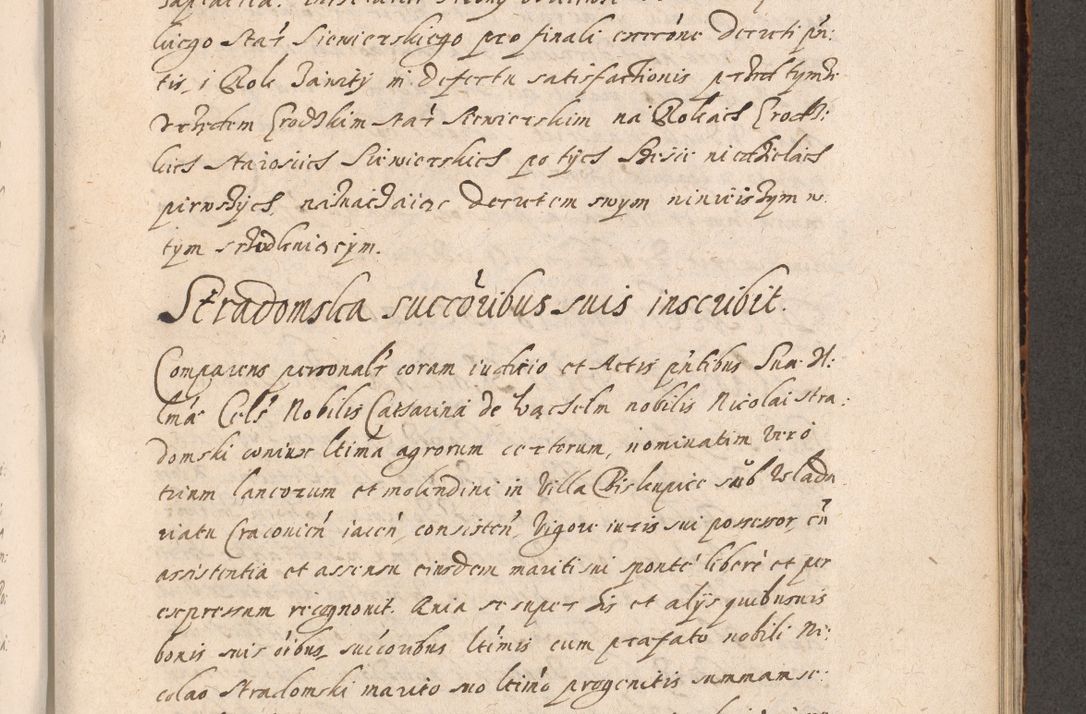 kiego Star̃ Siewierskiego pro finali exeròne decreti pñ:
tis, i Role Zawity in defectu satisfactionis przed tymże
Vrzędem Grodzkim star̃ Siewierskim na Rokach Grodz:
kich Starosticÿ Siewierskich po tych Sześć niedzielach
pierwszych, naznaczaiąc decretem swym ninieiszym w
tym srzodkuiącym.
Stradomska succõribus suis inscribit.
Comparens personalr̃ coram iudicio et Actis pñtibus Suæ Il:
lmæ Celñ Nobilis Catharina de Wąchelm nobilis Nicolai Stra:
domski coniunx ltima agrorum certorum, nominatim Verò
trium laneorum et molendini in Villa Biskupice sub Wlada
riatu Cracovień iaceń, consisteñ, Vigore iuris sui possessor, cũ
assistentia et assensu eiusdem mariti sui sponte liberè et per
expressum recognovit. Quia se super his et alys quibusvis
bonis suis õibus, succõribus ltimis cum præfato nobili Ni:
colao Stradomski marito suo ltimò progenitis summam se: